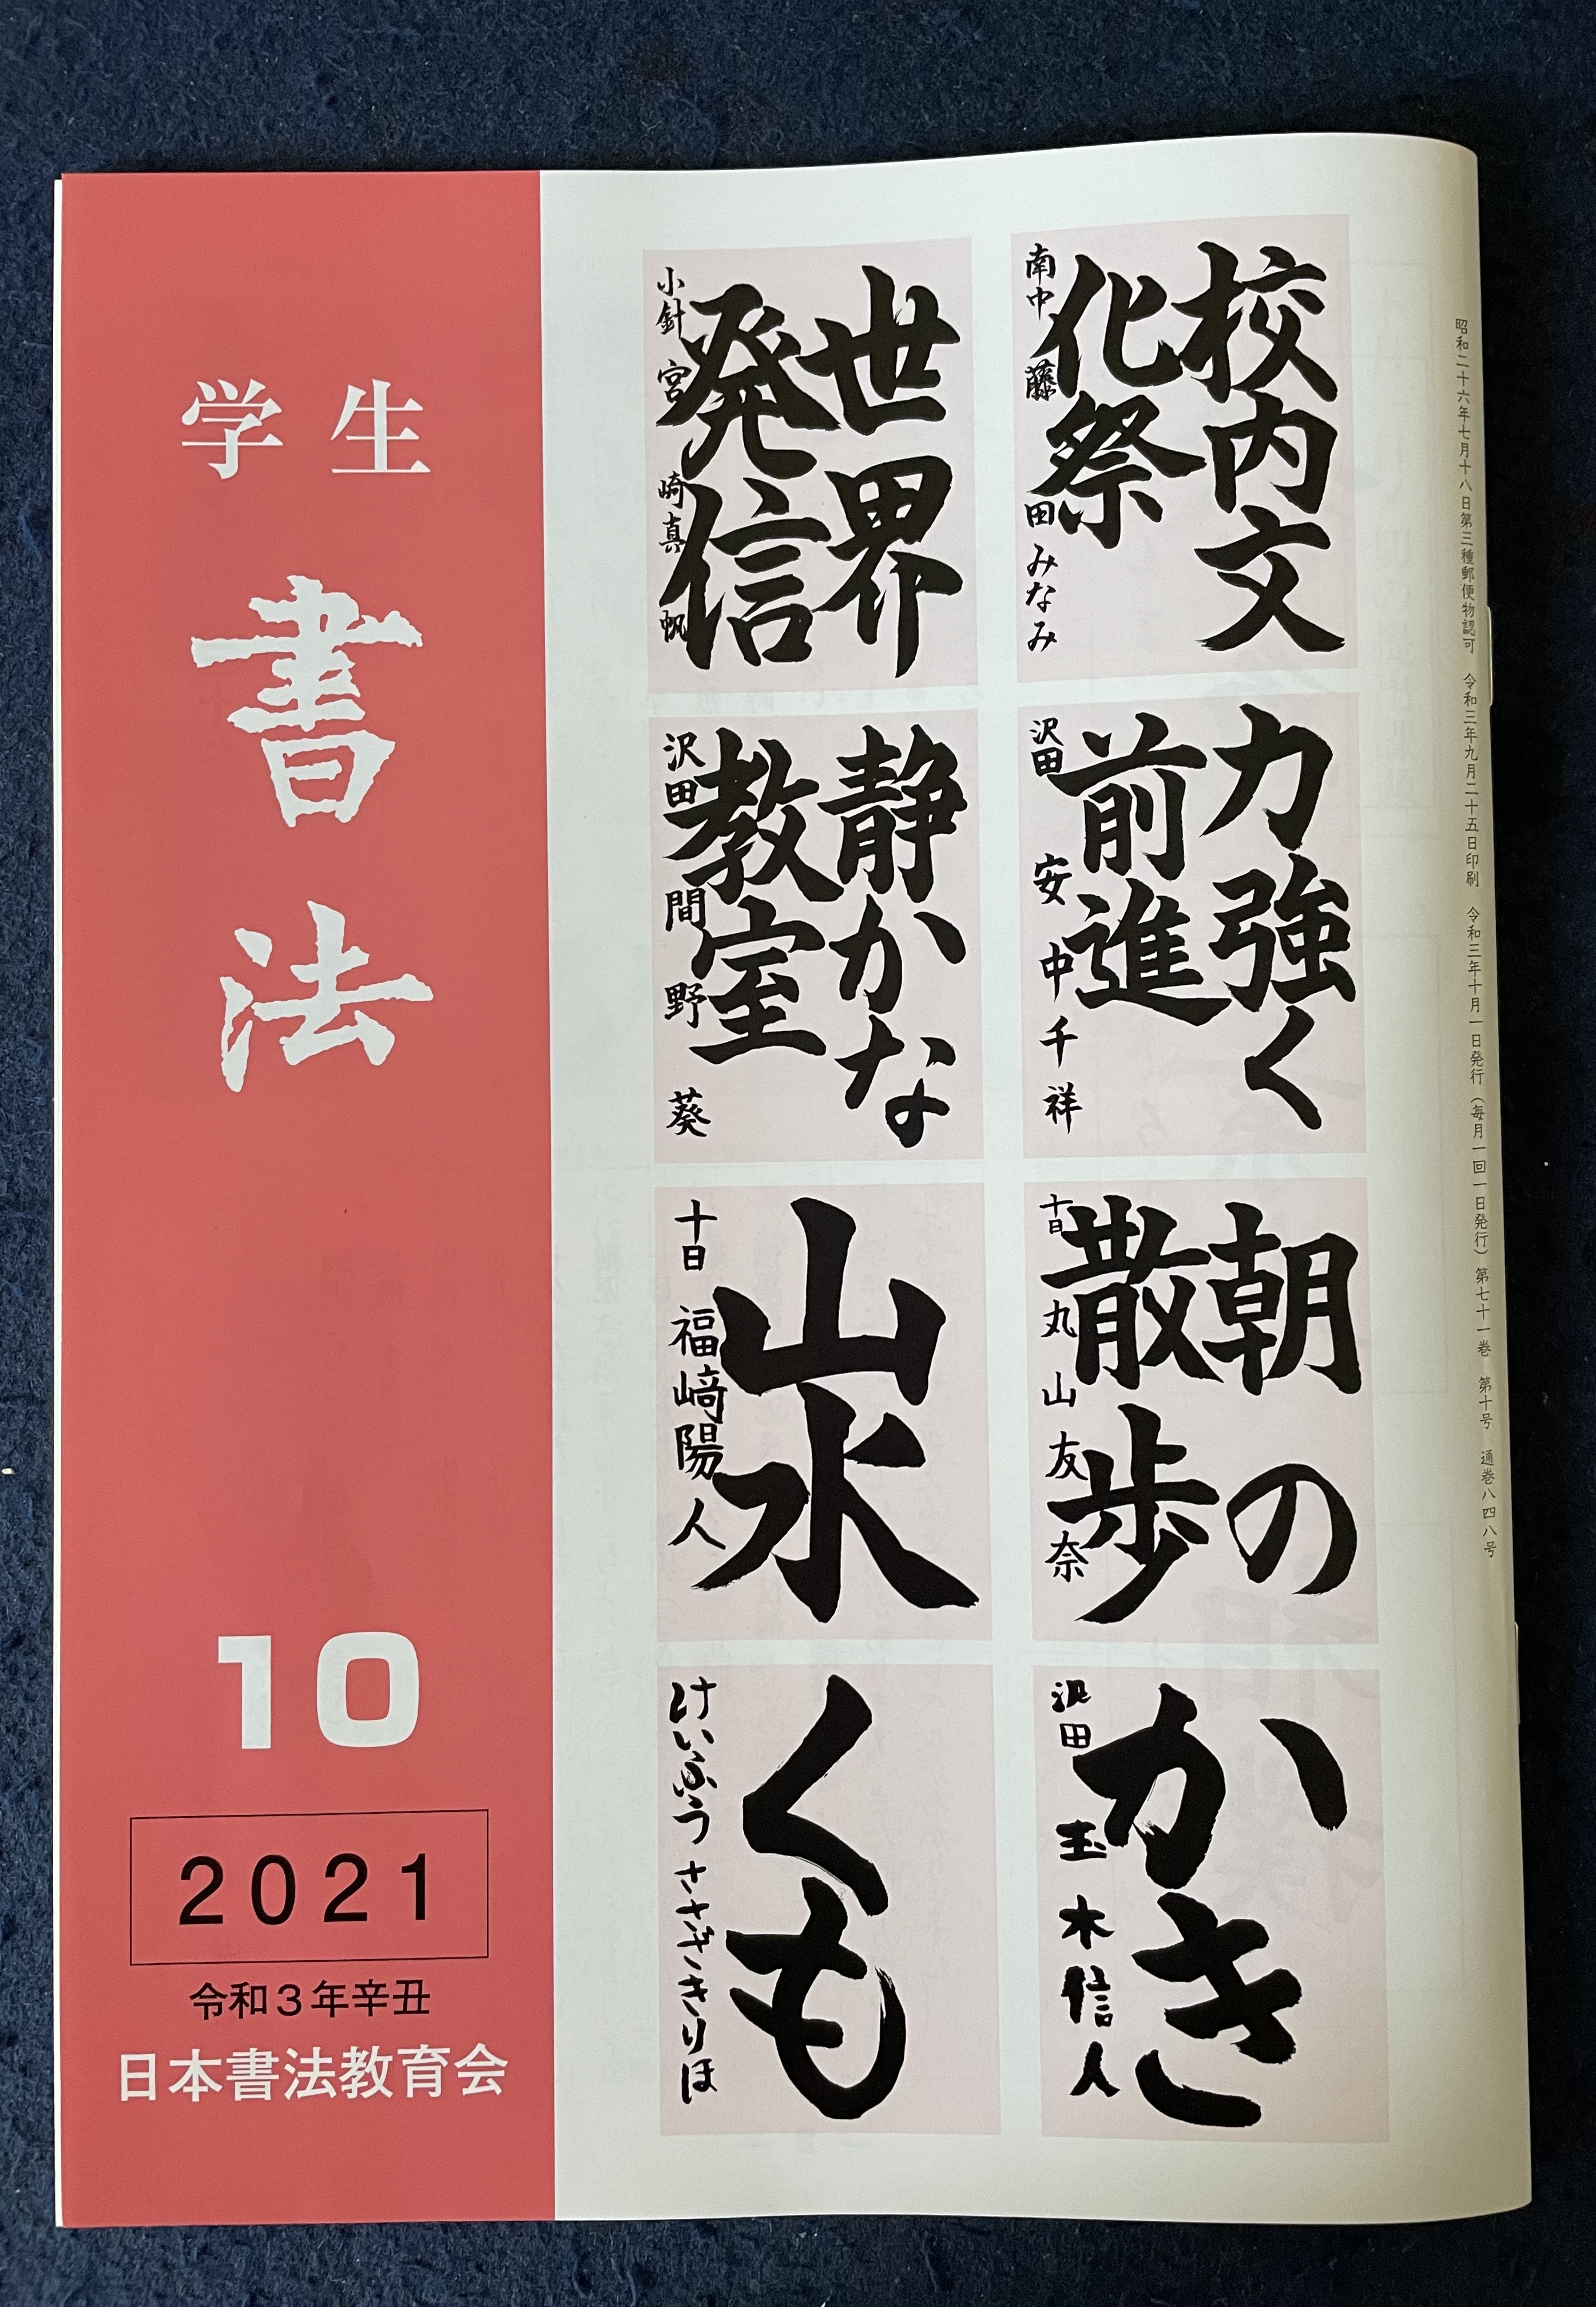 昭和二十六年七月十八日第三種郵便物認可　令和三年九月二十五日印刷　令和三年十月一日発行（毎月一回一日発行）第七十一巻　第十号　通巻八四八号
校内文
化祭
南中　藤田みなみ
世界
発信
小針　宮崎真帆
力強く
前進
沢田　安中千祥
静かな
教室
沢田　間野　葵
朝の
散歩
十日　丸山友奈
山水
十日　福﨑陽人
かき
沢田　玉木信人
くも
けいふう　ささざきりほ
学生
書法
10
2021
令和3年辛丑
日本書法教育会